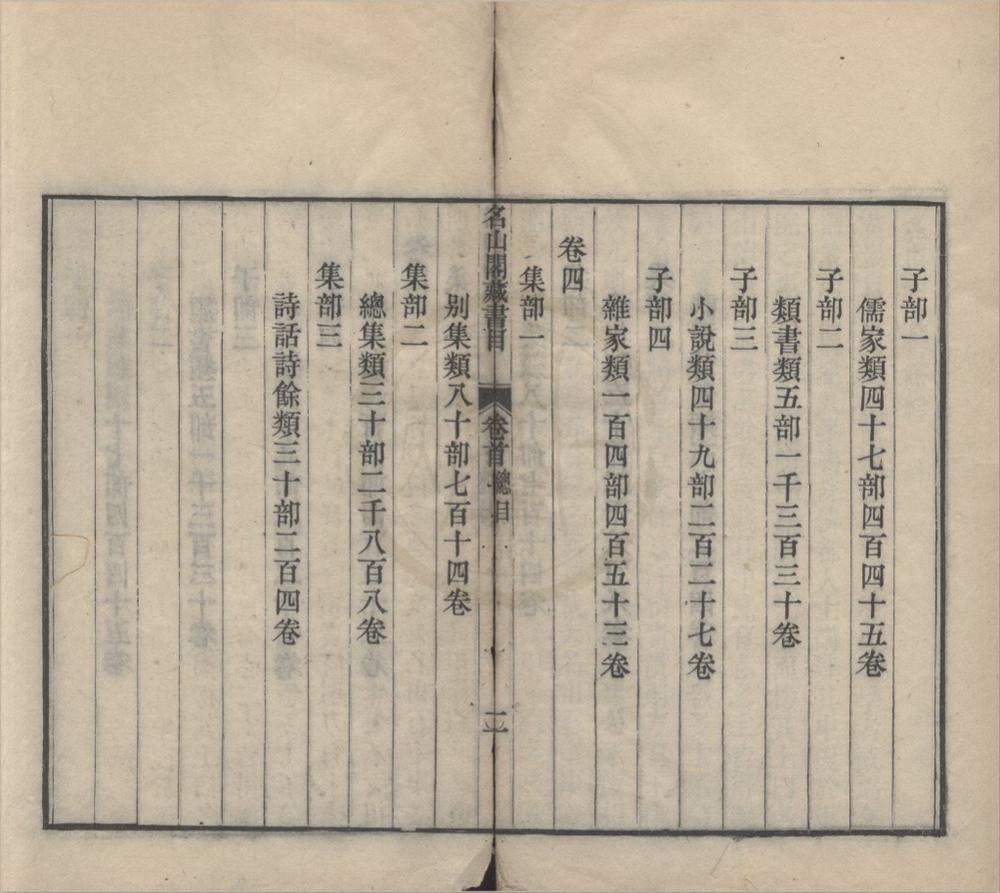 子部一
儒家類四十七部四百四十五卷
子部二
類書類五部一千三百三十卷
子部三
小說類四十九部二百二十七卷
子部四
雜家類一百四部四百五十三卷
卷四
集部一
名山閣藏書目 卷首 總目 二
別集類八十部七百十四卷
集部二
總集類三十部二千八百八卷
集部三
詩話詩餘類三十部二百四卷